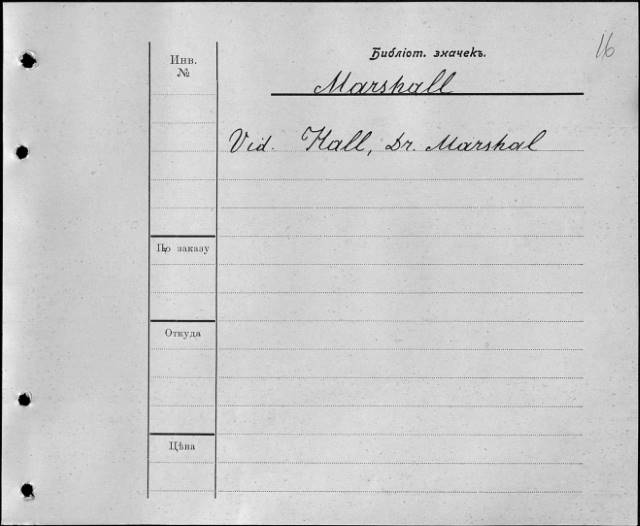 16
Инв.
№
Библіот. значекъ.
Marshall
Vid. Hall, Dr. Marshal
По заказу
Откуда
Цѣна